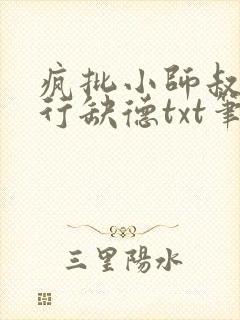 疯批小師叔
行缺德txt筆
三里陽水